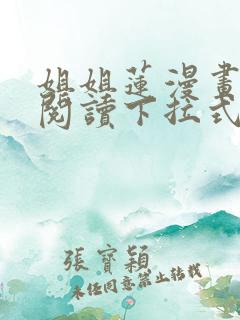 姐姐蓮漫畫
閱讀下拉式
張寶穎
未经同意禁止转载